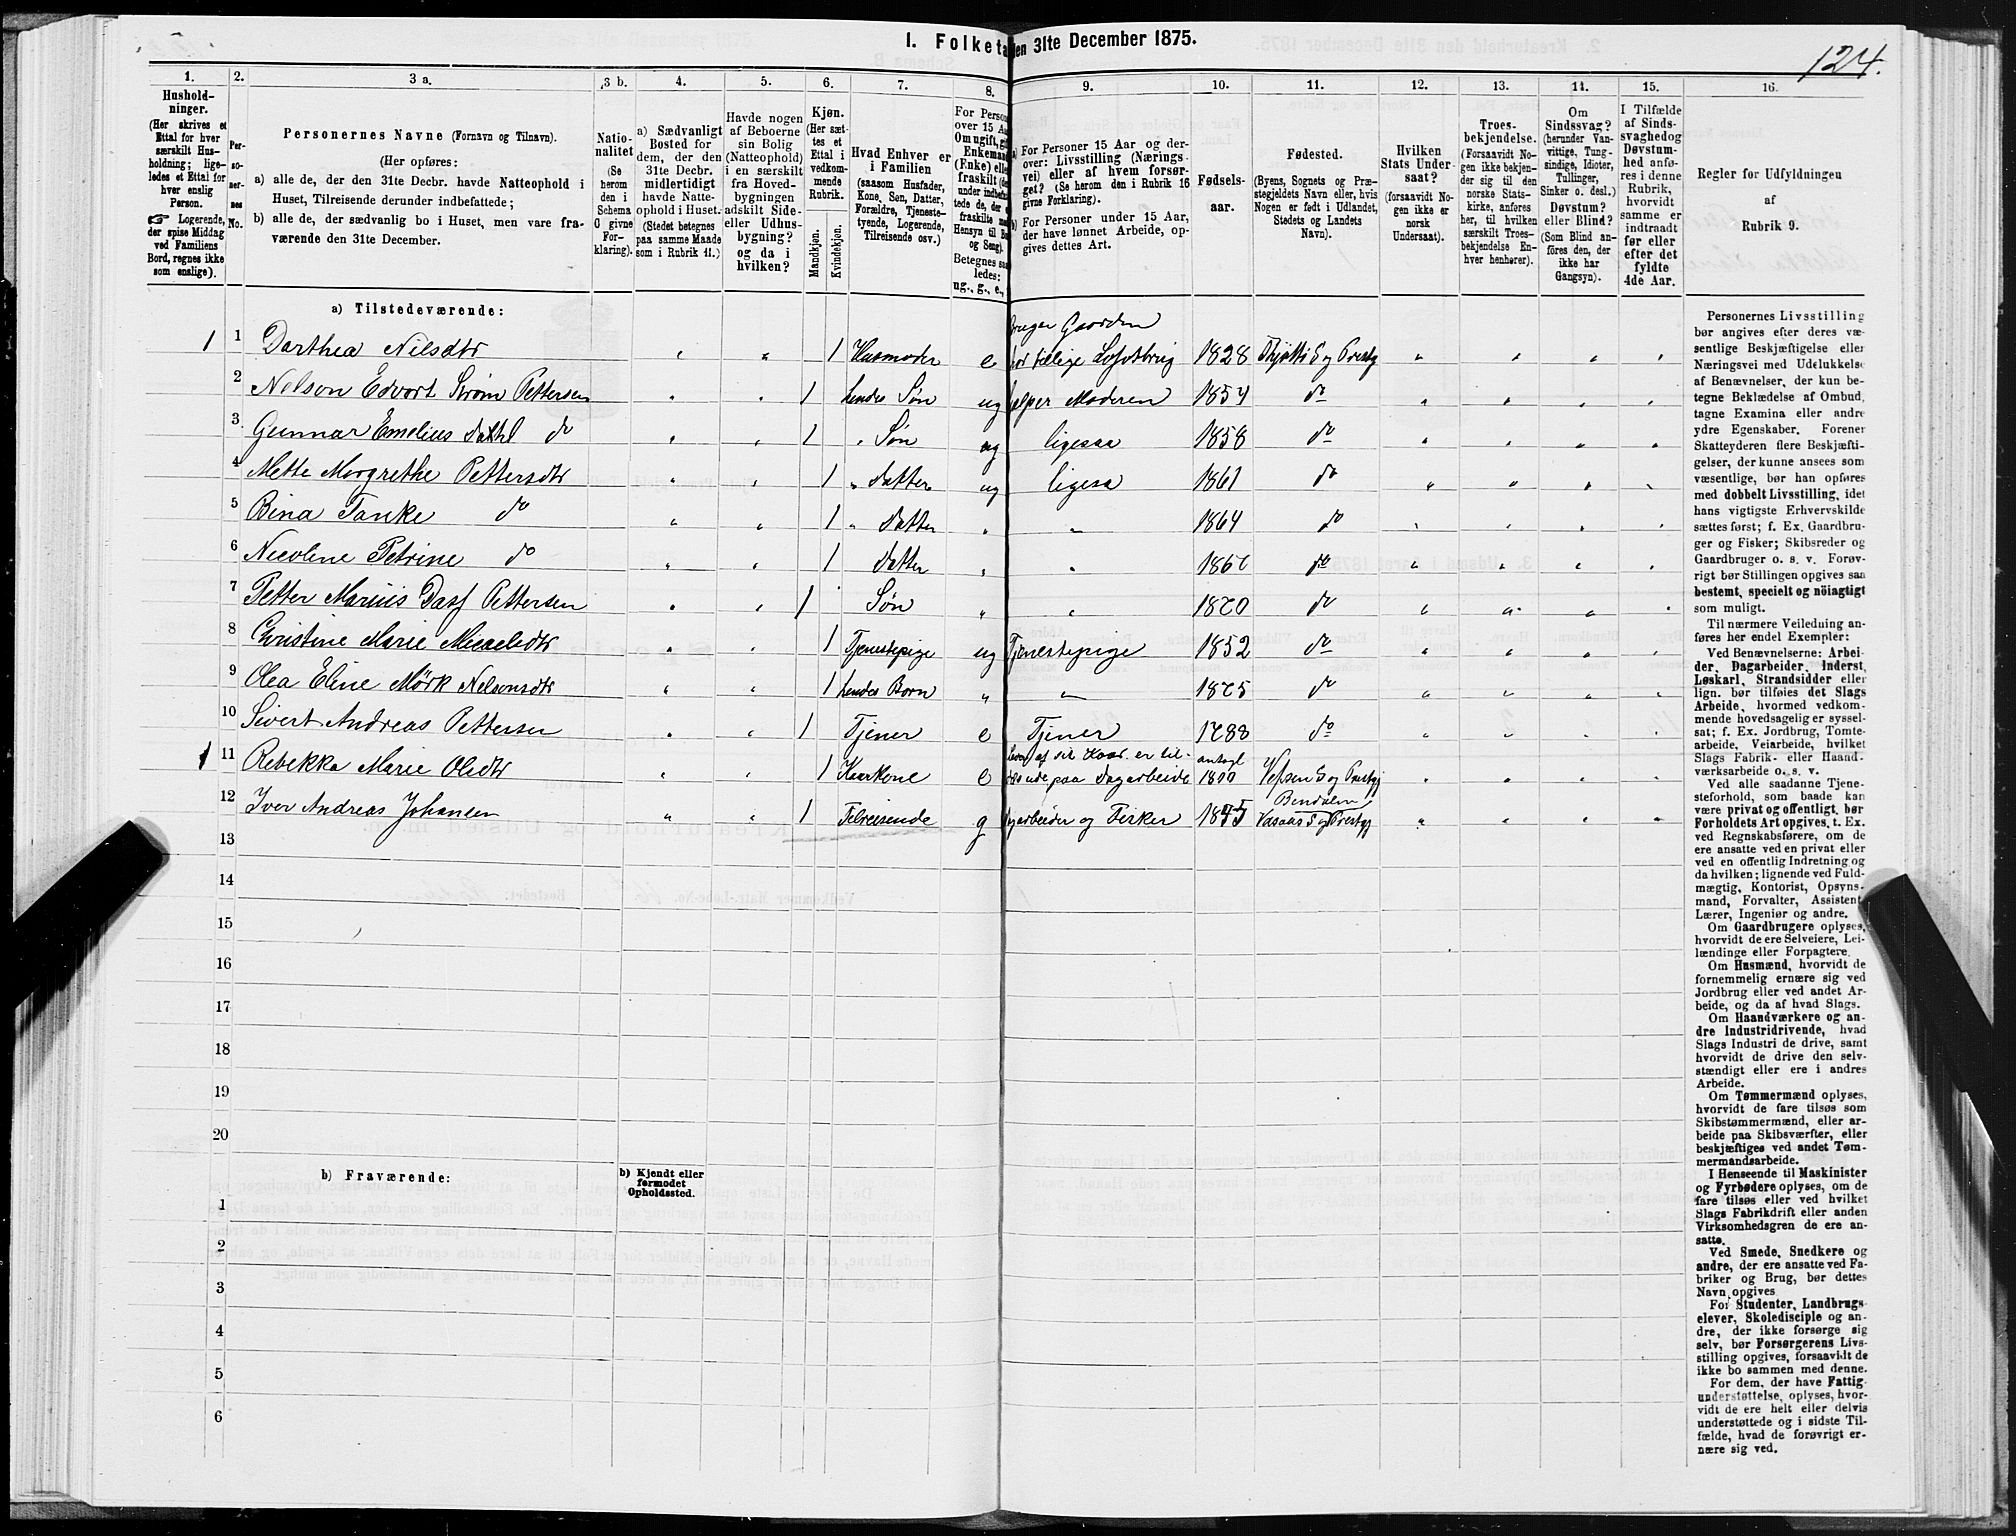 1. Folketa den 31te December 1875.
124.
1. 2. 3 a. 3 b. 4. 5. 6. 7. 8. 9. 10. 11. 12. 13. 14. 15. 16.
Hushold-
ninger.
(Her skrives et
Ettal for hver
særskilt Hus-
holdning; lige-
ledes et Ettal for
hver enslig
Person.
☞ Logerende,
der spise Middag
ved Familiens
Bord, regnes ikke
som enslige).
Per-
so-
ner-
nes
No.
Personernes Navne (Fornavn og Tilnavn).
(Her opføres:
a) alle de, der den 31te Decbr. havde Natteophold i
Huset, Tilreisende derunder indbefattede;
b) alle de, der sædvanlig bo i Huset, men vare fra-
værende den 31te December.
Natio-
nalitet
(Se
herom
den i
Schema
O givne
For-
klaring).
a) Sædvanligt
Bosted for
dem, der den
31te Decbr.
midlertidigt
havde Natte-
ophold i Huset.
(Stedet betegnes
paa samme Maade
som i Rubrik 11.)
Havde nogen
af Beboerne
sin Bolig
(Natteophold)
i en særskilt
fra Hoved-
bygningen
adskilt Side-
eller Udhus-
bygning?
og da i
hvilken?
Kjøn.
(Her sæt-
tes et
Ettal i
vedkom-
mende
Rubrik.
Mandkjøn.
Kvindekjøn.
Hvad Enhver er
i Familien
(saasom Husfader,
Kone, Søn, Datter,
Forældre, Tjeneste-
tyende, Logerende,
Tilreisende osv.)
For Person
over 15 Aa
Om ugift, gif
Enkemand
(Enke) elle
fraskilt (der
under indbefat
tede de, der e
fraskilte m
Hensyn til Bo
og Seng).
Betegnes saa
ledes:
ug., g., e.,
a) For Personer 15 Aar og der-
over: Livsstilling (Nærings-
vei) eller af hvem forsør-
get? (Se herom den i Rubrik 16
givne Forklaring).
b) For Personer under 15 Aar,
der have lønnet Arbeide, op-
gives dettes Art.
Fødsels-
aar.
Fødested.
(Byens, Sognets og Præ-
stegjeldets Navn eller, hvis
Nogen er født i Udlandet,
Stedets og Landets
Navn).
Hvilken
Stats Under-
saat?
(forsaavidt No-
gen ikke er
norsk
Undersaat).
Troes-
bekjendelse.
(Forsaavidt No-
gen ikke bekjen-
der sig til den
norske Stats-
kirke, anføres
her, til hvilken
særskilt Troes-
bekjendelse En-
hver henhører).
Om
Sindssvag?
(herunder Van-
vittige, Tung-
sindige, Idioter,
Tullinger,
Sinker o. desl.)
Døvstum?
eller Blind?
(Som Blind an-
føres den, der
ikke har
Gangsyn).
I Tilfælde
af Sinds-
svaghed og
Døvstum-
hed anfø-
res i denne
Rubrik,
hvorvidt
samme er
indtraadt
før eller
efter det
fyldte
4de Aar.
Regler for Udfyldningen
af
Rubrik 9.
a) Tilstedeværende:
1 1 Darthea Nilsdtr " " 1 Husmoder e bruger Gaarden for tillige Lofotbrug 1828 Thjøtta S og Prestg " " " "
2 Nelson Edvart Strøm Pettersen " " 1 hendes Søn ug hjelper Moderen 1854 do " " " "
3 Gunnar Emelius Dahl do " " 1 " Søn ug ligesaa 1858 do " " " "
4 Mette Margrethe Pettersdtr " " 1 " datter ug ligesa 1861 do " " " "
5 Bina Tanke do " " 1 " datter " " 1864 do " " " "
6 Nicoline Petrine do " " 1 datter " " 1867 do " " " "
7 Petter Marius Dass Pettersen " " 1 Søn " " 1870 do " " " "
8 Christine Marie Micaelsdtr " " 1 Tjenestepige ug Tjenestepige 1852 do " " " "
9 Olea Eline Mørk Nelsonsdtr " " 1 hendes Barn " " 1875 do " " " "
10 Sivert Andreas Pettersen " " 1 Tjener e Tjener 1788 do " " " "
1 11 Rebekka Marie Olsdtr " " 1 Kaarkone e Lever af sit Kaar er til- ude paa Dagarbeide antagl 1800 Vefsen S og Prestgj " " " "
12 Iver Andreas Johansen " " 1 Tilreisende g arbeider og Fisker 1845 Bindalen Vasaas S og Prestgj " " " "
13
14
15
16
17
18
19
20
b) Fraværende:
b) Kjendt eller
formodet
Opholdssted.
1
2
3
4
5
6
Personernes Livsstilling
bør angives efter deres væ-
sentlige Beskjæftigelse eller
Næringsvei med Udelukkelse
af Benævnelser, der kun be-
tegne Beklædelse af Ombud,
tagne Examina eller andre
ydre Egenskaber. Forener
Skatteyderen flere Beskjæfti-
gelser, der kunne ansees som
væsentlige, bør han opføres
med dobbelt Livsstilling, idet
hans vigtigste Erhvervskilde
sættes først; f. Ex. Gaardbru-
ger og Fisker; Skibsreder og
Gaardbruger o. s. v. Forøv-
rigt bør Stillingen opgives saa
bestemt, specielt og nöiagtigt
som muligt.
Til nærmere Veiledning an-
føres her endel Exempler:
Ved Benævnelserne: Arbei-
der, Dagarbeider, Inderst,
Løskarl, Strandsidder eller
lign. bør tilføies det Slags
Arbeide, hvormed vedkom-
mende hovedsagelig er syssel-
sat; f. Ex. Jordbrug, Tomte-
arbeide, Veiarbeide, hvilket
Slags Fabrik- eller Haand-
værksarbeide o. s. v.
Ved alle saadanne Tjene-
steforhold, som baade kan
være privat og offentligt, bør
Forholdets Art opgives, t. Ex.
ved Regnskabsførere, om de
ere ansatte ved en privat eller
ved en offentlig Indretning og
da hvilken; lignende ved Fuld-
mægtig, Kontorist, Opsyns-
mand, Forvalter, Assistent,
Lærer, Ingeniør og andre.
Om Gaardbrugere oplyses,
hvorvidt de ere Selveiere, Lei-
lændinge eller Forpagtere.
Om Husmænd, hvorvidt de
fornemmelig ernære sig ved
Jordbrug eller ved andet Ar-
beide, og da af hvad Slags.
Om Haandværkere og an-
dre Industridrivende, hvad
Slags Industri de drive, samt
hvorvidt de drive den selv-
stændigt eller ere i andres
Arbeide.
Om Tømmermænd oplyses,
hvorvidt de fare tilsøs som
Skibstømmermænd, eller ar-
beide paa Skibsværfter, eller
beskjæftiges ved andet Tøm-
mermandsarbeide.
I Henseende til Maskinister
og Fyrbødere oplyses, om de
fare tilsøs eller ved hvilket
Slags Fabrikdrift eller anden
Virksomhedsgren de ere an-
satte.
Ved Smede, Snedkere og
andre, der ere ansatte ved Fa-
briker og Brug, bør dettes
Navn opgives.
For Studenter, Landbrugs-
elever, Skoledisciple og an-
dre, der ikke forsørge sig
selv, bør Forsørgerens Livs-
stilling opgives, forsaavidt de
ikke bo sammen med denne.
For dem, der have Fattig-
understøttelse, oplyses, hvor-
vidt de ere helt eller delvis
understøttede og i sidste Til-
fælde, hvad de forøvrigt er-
nære sig ved.